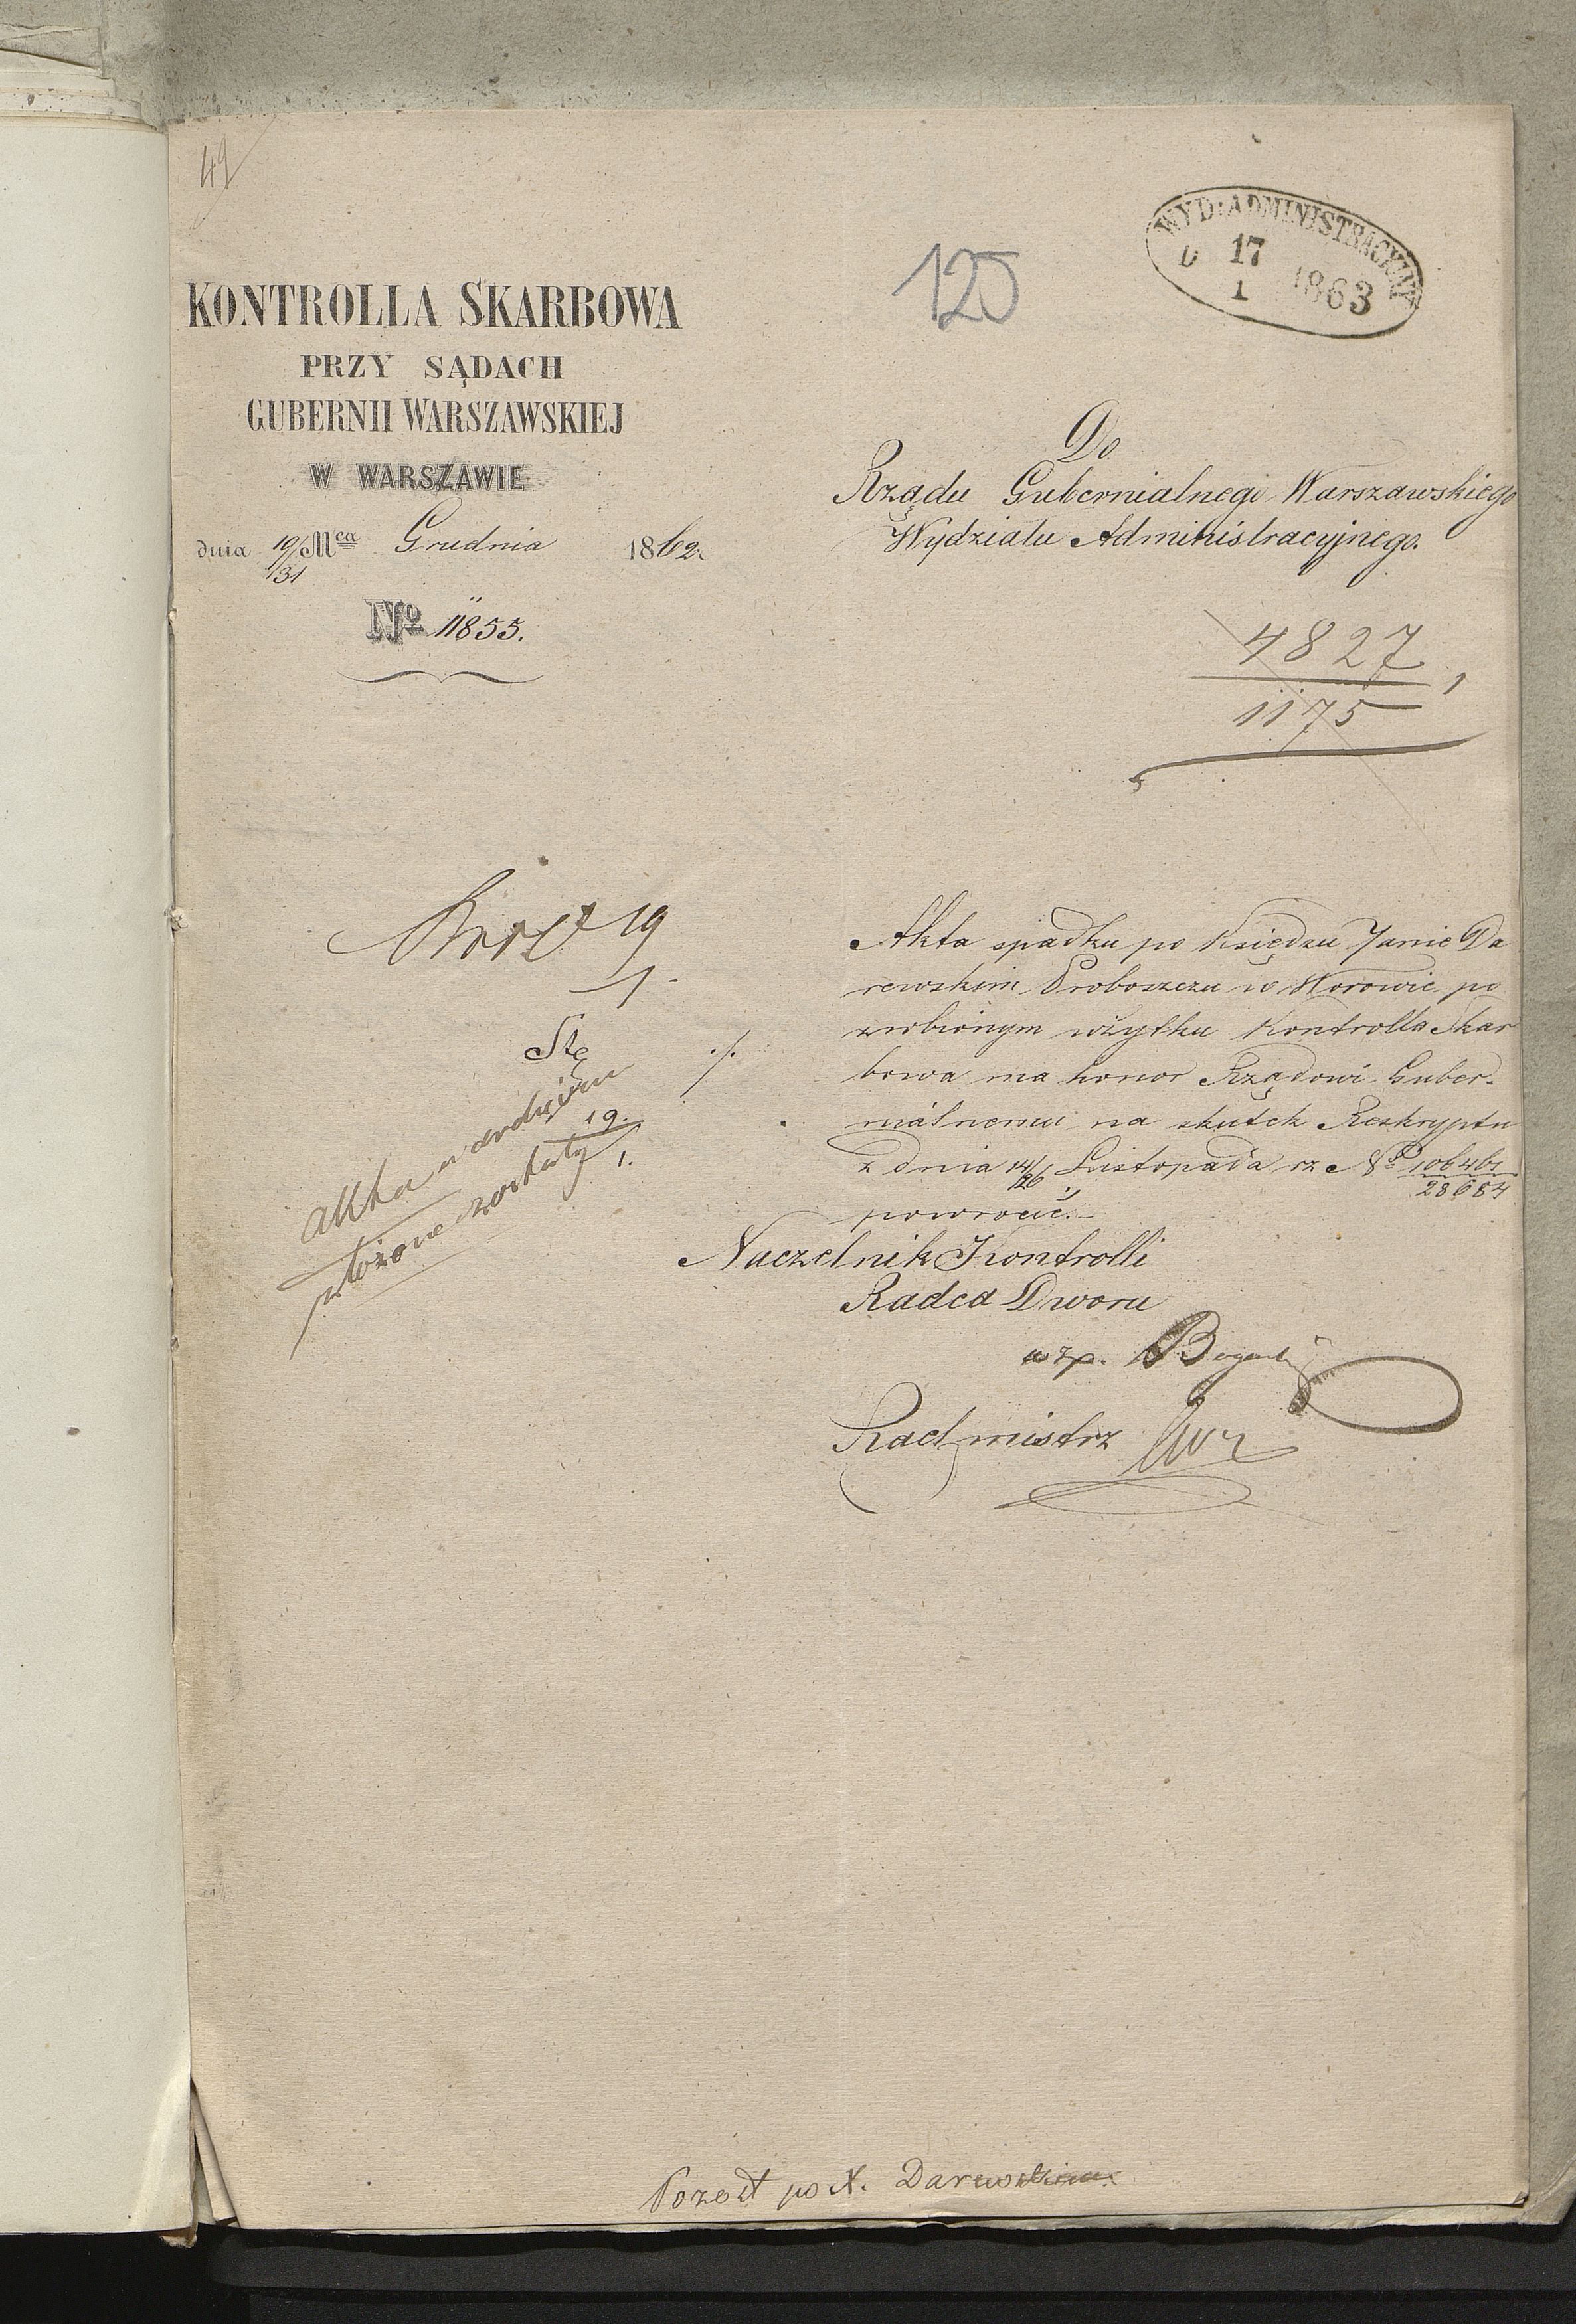 49
125
WYD: ADMINISTRACYJNY
D 17/1 1863
KONTROLLA SKARBOWA
PRZY SĄDACH
GUBERNII WARSZAWSKIEJ
W WARSZAWIE
dnia 19/31 Mca Grudnia 1862.
No 11855.
Do
Rządu Gubernialnego Warszawskiego
Wydziału Administracyjnego.
4827
1175
Akta spadku po Księdzu Janie Da
rewskim Proboszczu w Worowie po
zrobionym użytku Kontrolla Skar
bowa ma honor Rządowi Guber-
nialnemu na skutek Reskryptu
z dnia 14/26 Listopada rz No 106461/28684
powrócić.
Naczelnik Kontrolli
Radca Dworu
wzp.
Rachmistrz
19
1.
akta
położone zostały 19/1.
Pozost po X. Darewskim